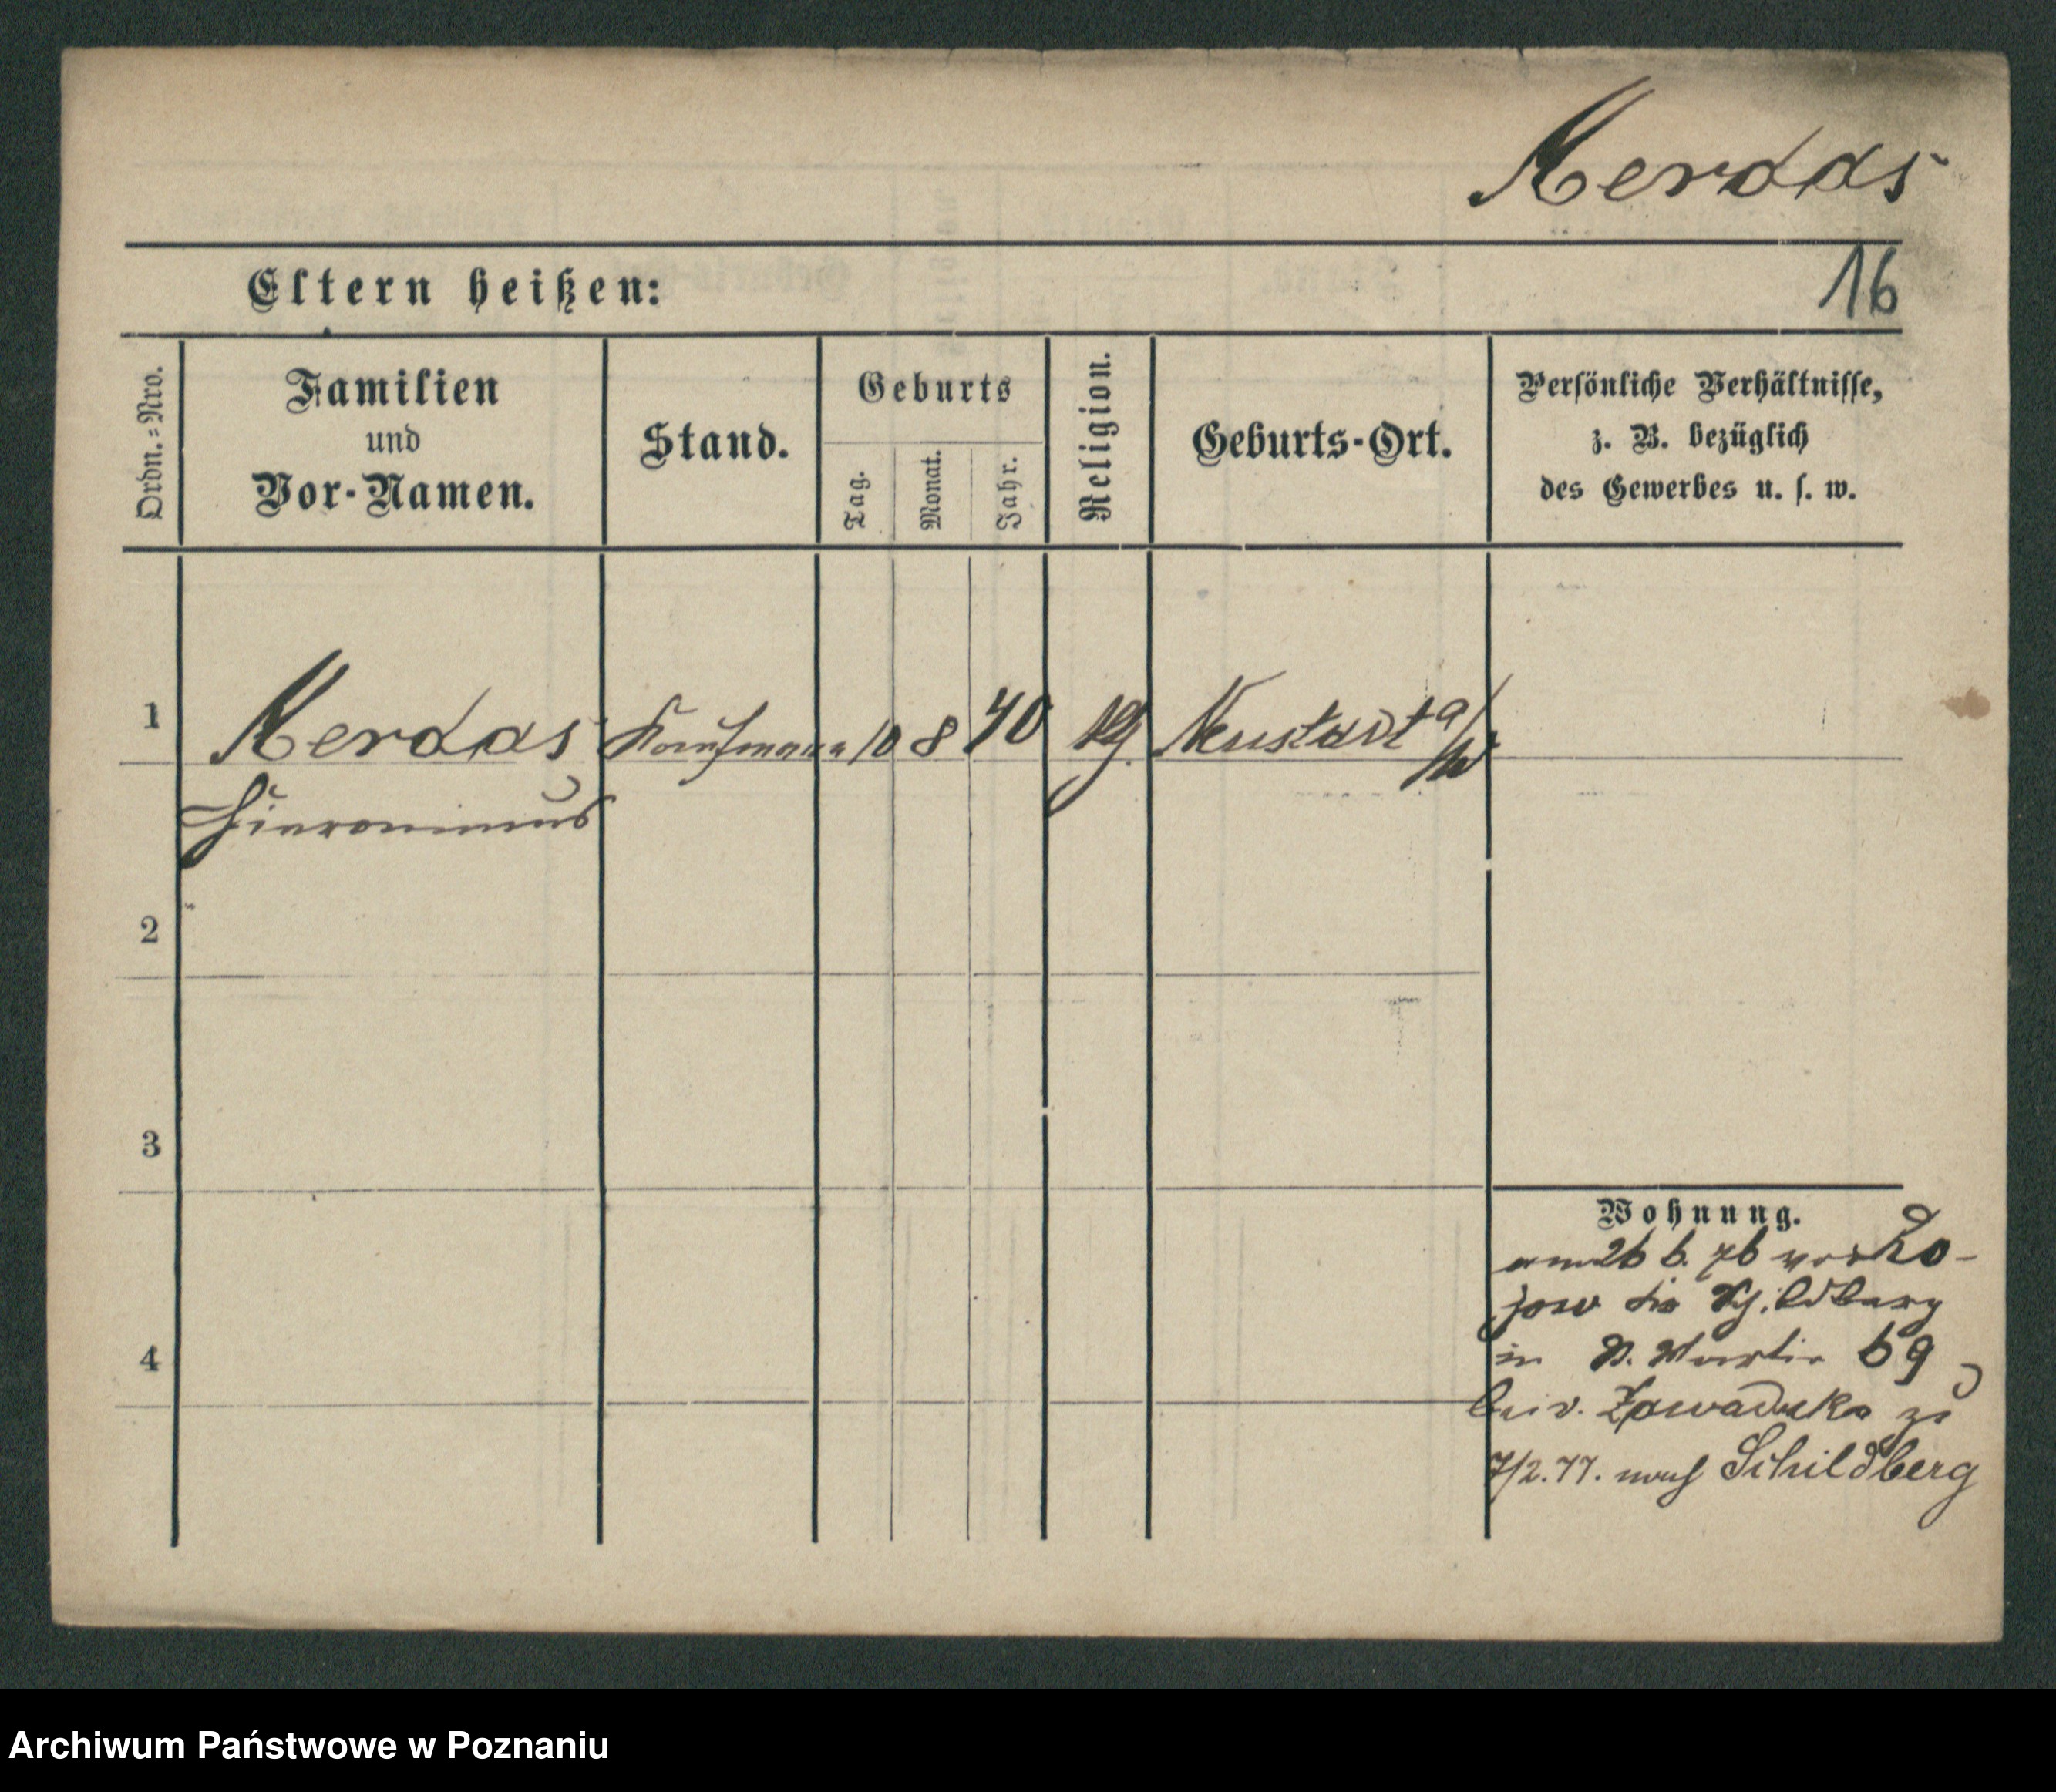 Merdas
16
Eltern heißen:
Ordn.=Nro.
Familien
und
Vor-Namen.
Stand.
Geburts
Tag.
Monat.
Jahr.
Religion.
Geburts-Ort.
Persönliche Verhältnisse,
z. B. bezüglich
des Gewerbes u. s. w.
1
Merdas Kaufmann 10 8 40 Neustadt a/W
Hieronimus
2
3
4
Wohnung.
am 26 6. 76 von Ro-
jow Schildberg
in St. Martin 69
bei v. Zawadzka zu
7/2.77. nach Schildberg
Archiwum Państwowe w Poznaniu